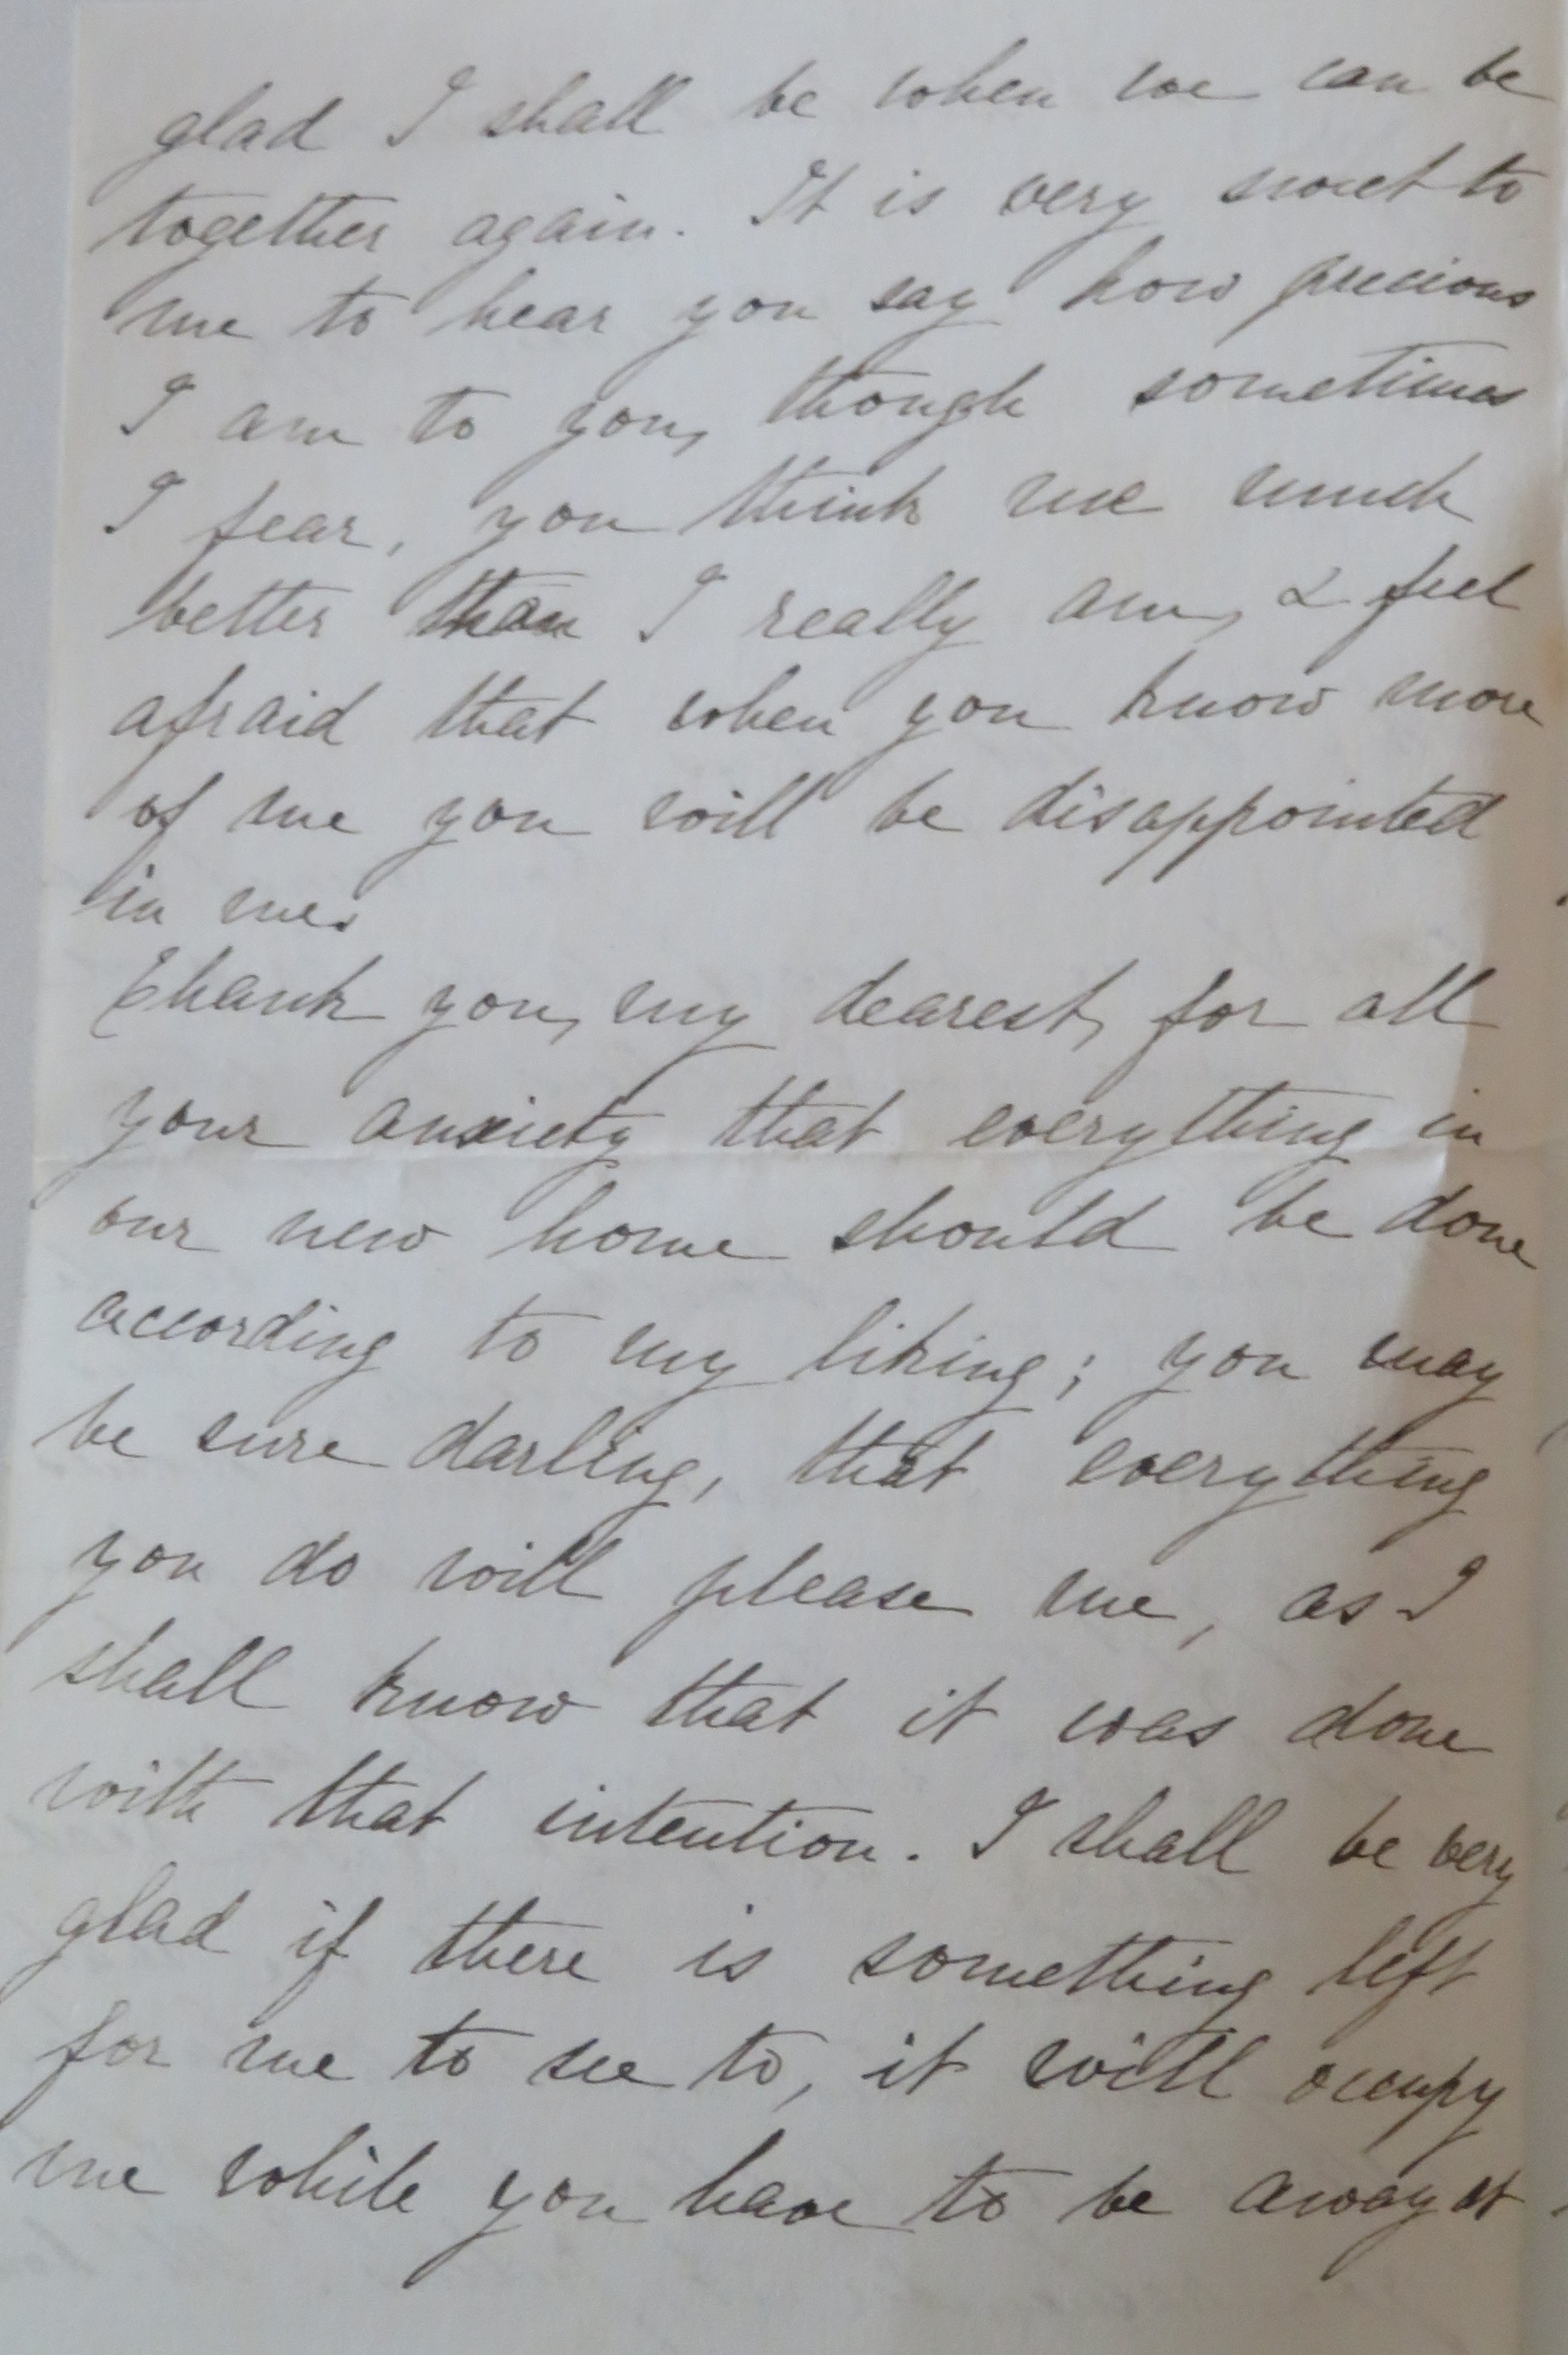 glad I shall be when we can be
together again. It is very sweet to
me to hear you say how precious
I am to you, though sometimes
I fear, you think me much
better than I really am, & feel
afraid that when you know more
of me you will be disappointed
in me.
Thank you, my dearest, for all
your anxiety that everything in
our new home should be done
according to my liking; you may
be sure darling, that everything
you do will please me, as I
shall know that it was done
with that intention. I shall be very
glad if there is something left
for me to see to, it will occupy
me while you have to be away at